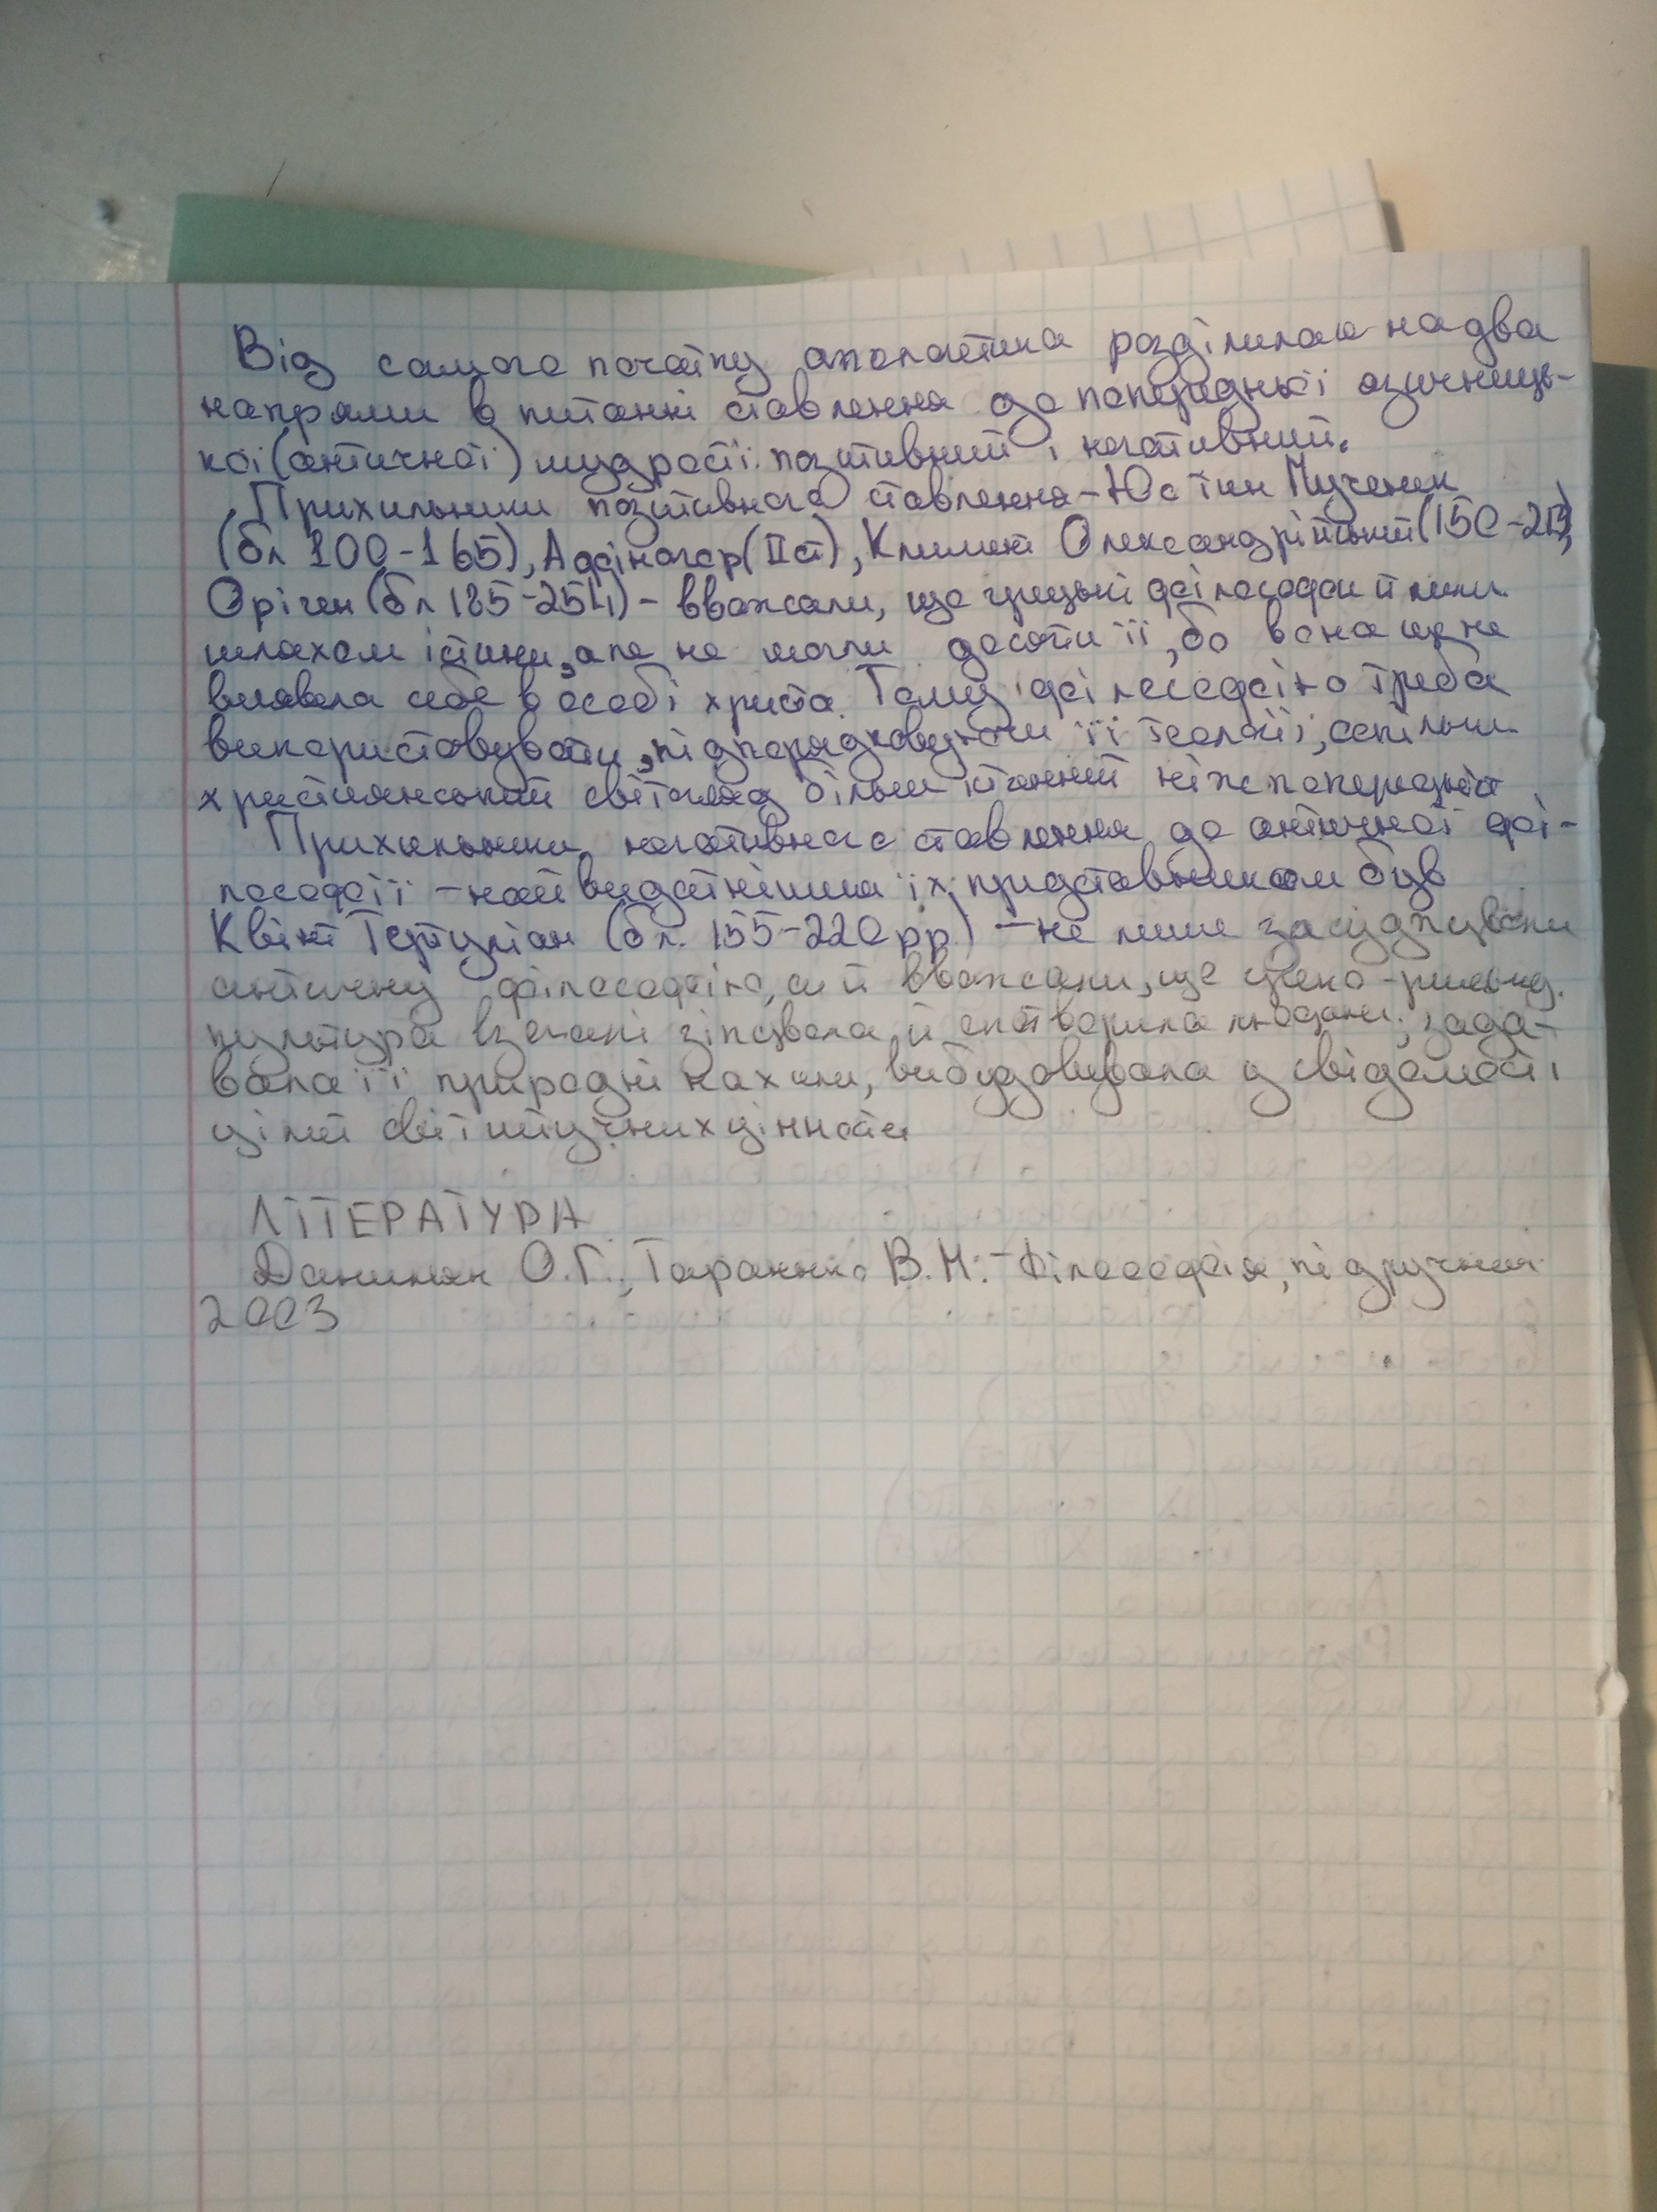 Від самого початку апологетика розділилась на два
напрями в питанні ставлення до попередньої язичниць-
кої (античної) мудрості: позитивний і негативний.
Прихильники позитивного ставлення - Юстин Мученик
(бл 100-165), Афінагор (II ст), Климент Олександрійський (150-215),
Оріген (бл 185-254) - вважали, що грецькі філософи йшли
шляхом істини, але не могли досягти її, бо вона ще не
виявила себе в особі христа. Тому філософію треба
використовувати, підпорядковуючи її теології, оскільки
християнський світогляд більш істинний ніж попередній
Прихильники негативного ставлення до античної фі-
лософії - найвидатнішим їх представником був
Квінт Тертуліан (бл. 155-220 рр.) - не лише засуджували
античну філософію, а й вважали, що греко-римська
культура взагалі зіпсувала й спотворила людину, зада-
вала її природні нахили, вибудовувала у свідомості
цілий світ штучних цінностей
ЛІТЕРАТУРА
Данильян О.Г., Тараненко В.М. - Філософія, підручник
2003